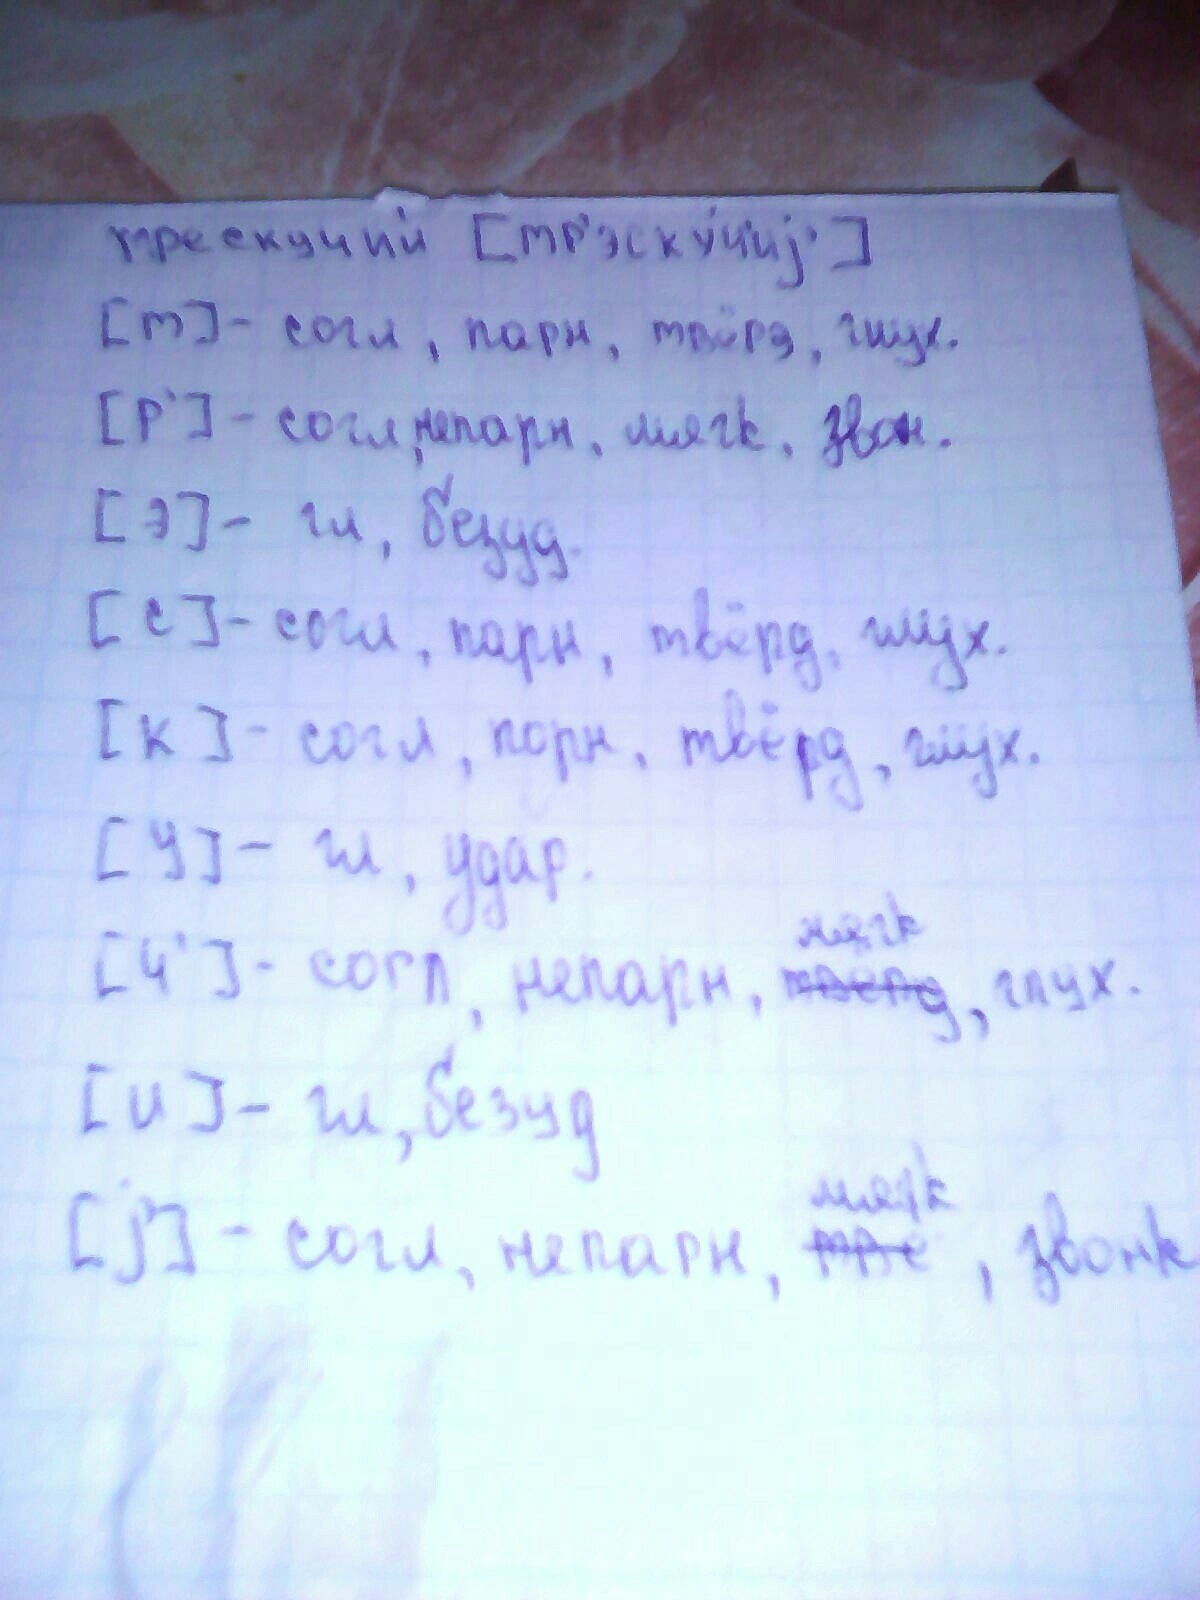 трескучий [тр'эску́ч'иj']
[т] - согл, парн, твёрд, глух.
[р'] - согл, непарн, мягк, звон.
[э] - гл, безуд.
[с] - согл, парн, твёрд, глух.
[к] - согл, порн, твёрд, глух.
[у] - гл, удар.
мягк
[ч'] - согл, непарн, твёрд, глух.
[и] - гл, безуд
мягк
[j'] - согл, непарн, тве, звонк